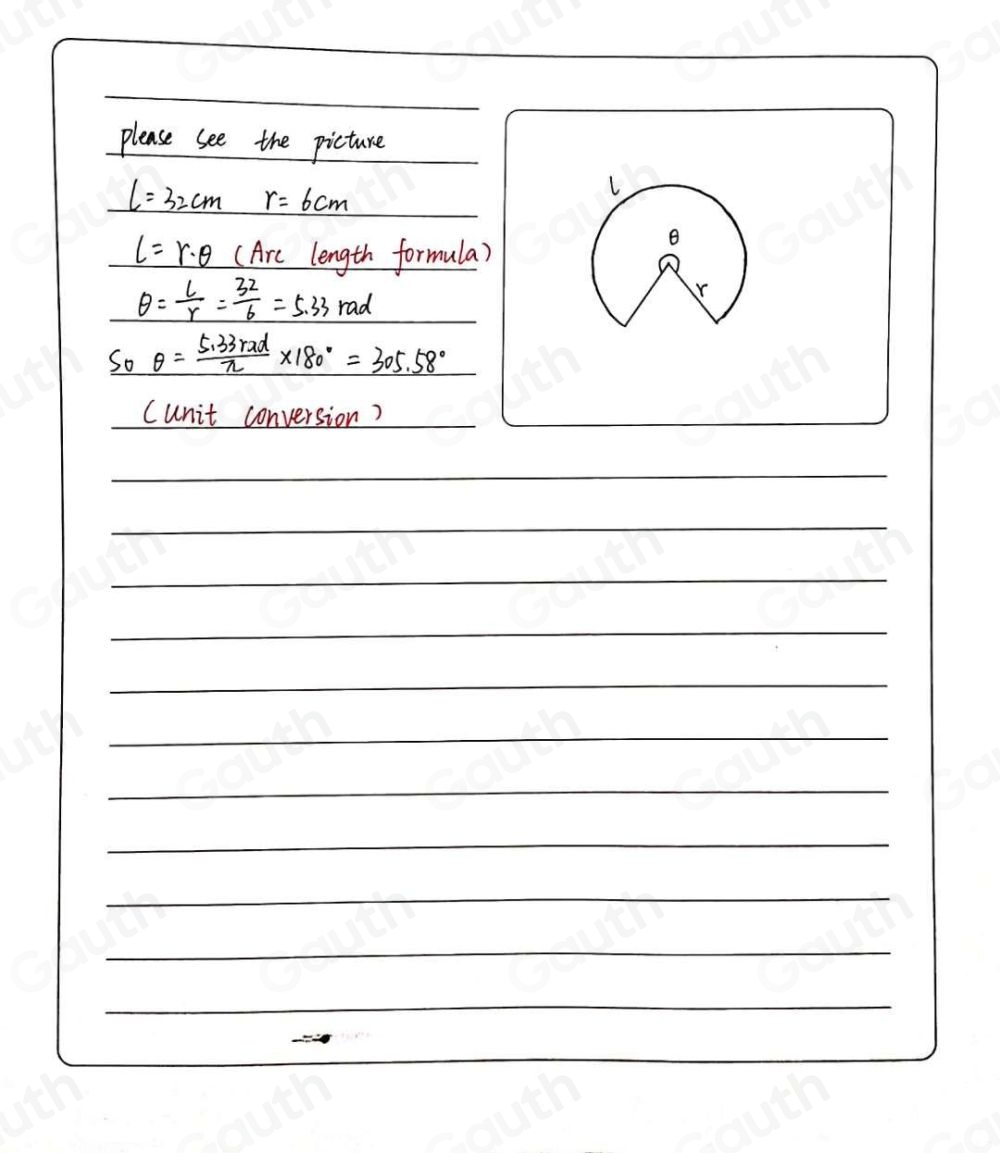 please see the picture
l = 32cm r = 6cm
l = r·θ (Arc length formula)
θ = l/r = 32/6 = 5.33 rad
So θ = 5.33rad/π ×180° = 305.58°
(unit conversion)
l
θ
r
Gauth